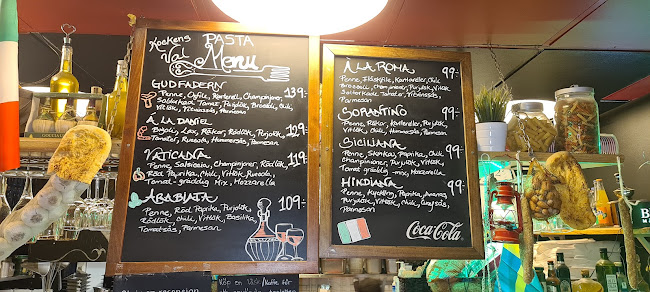 Kockens
Val
PASTA
Menu
GUDFADERN 139:-
Penne, Oxfilé, Kantarell, Champinjoner,
Soltorkad Tomat, Purjolök, Broccoli, Chili,
Vitlök, Vitvinssås, Parmesan
Á LA DANIEL 129:-
Penne, Lax, Räkor, Rödlök, Purjolök
Tomater, Rucola, Hummersås, Parmesan
VATICANA 119:-
Penne, Salsiccia, Champinjoner, Rödlök,
Röd Paprika, Chili, Vitlök, Rucola,
Tomat-grädde Mix, Mozzarella
ARABIATA 109:-
Penne, Röd Paprika, Purjolök,
Rödlök, Chili, Vitlök, Basilika,
Tomatsås, Parmesan
Á LA ROMA 99:-
Penne, Fläskfilé, Kantareller, Chili,
Broccoli, Champinjoner, Purjolök, Vitlök
Soltorkad Tomater, Vitvinssås,
Parmesan
SORANTINO 99:-
Penne, Räkor, Kantareller, Purjolök,
Vitlök, Chili, Hummersås, Parmesan
SICILIANA 99:-
Penne, Skinka, Paprika, Chili
Champinjoner, Purjolök, Vitlök,
Tomat-grädde mix, Mozzarella
HINDIANA 99:-
Penne, Kyckling, Paprika, Ananas
Purjolök, Vitlök, Chili, Currysås,
Parmesan
Coca-Cola